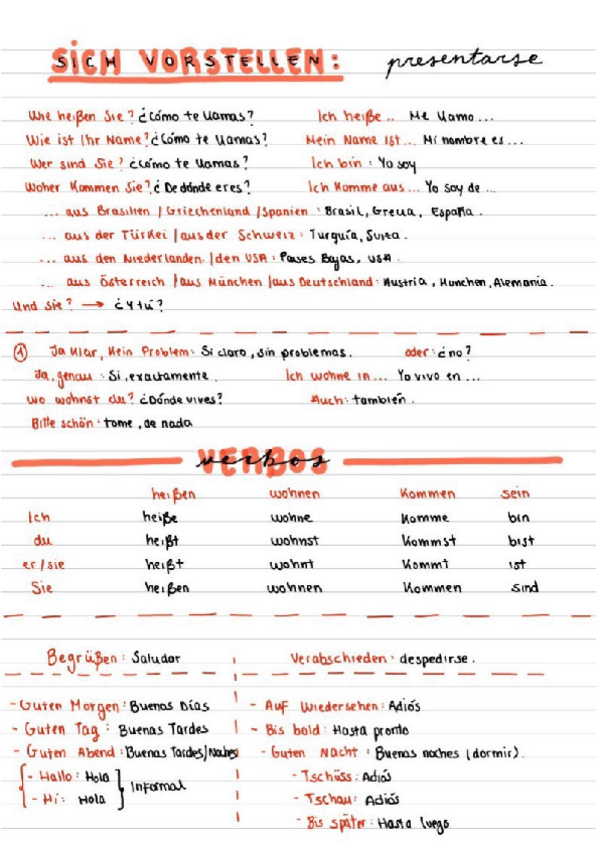 SICH VORSTELLEN: presentarse
Wie heißen Sie? ¿Cómo te llamas? Ich heiße.. Me llamo...
Wie ist Ihr Name? ¿Cómo te llamas? Mein Name ist... Mi nombre es...
Wer sind Sie? ¿Cómo te llamas? Ich bin: Yo soy
Woher kommen Sie? ¿De dónde eres? Ich komme aus... Yo soy de...
... aus Brasilien / Griechenland / Spanien: Brasil, Grecia, España.
... aus der Türkei / aus der Schweiz: Turquía, Suiza.
... aus den Niederlanden / den USA: Países Bajos, USA.
... aus Österreich / aus München / aus Deutschland: Austria, Munchen, Alemania.
Und Sie? → ¿Y tú?
① Ja klar, kein Problem: Sí claro, sin problemas. oder: ¿no?
Ja, genau: Si, exactamente. Ich wohne in... Yo vivo en...
Wo wohnst du? ¿Dónde vives? Auch: también.
Bitte schön: tome, de nada
VERBOS verbos
heißen wohnen kommen sein
Ich heiße wohne komme bin
du heißt wohnst kommst bist
er/sie heißt wohnt kommt ist
Sie heißen wohnen kommen sind
Begrüßen: Saludar Verabschieden: despedirse.
- Guten Morgen: Buenos Días - Auf Wiedersehen: Adiós
- Guten Tag: Buenas Tardes - Bis bald: Hasta pronto
- Guten Abend: Buenas Tardes/Noches - Guten Nacht: Buenas noches (dormir).
- Hallo: Hola - Tschüss: Adiós
Informal
- Hi: Hola - Tschau: Adiós
- Bis später: Hasta luego